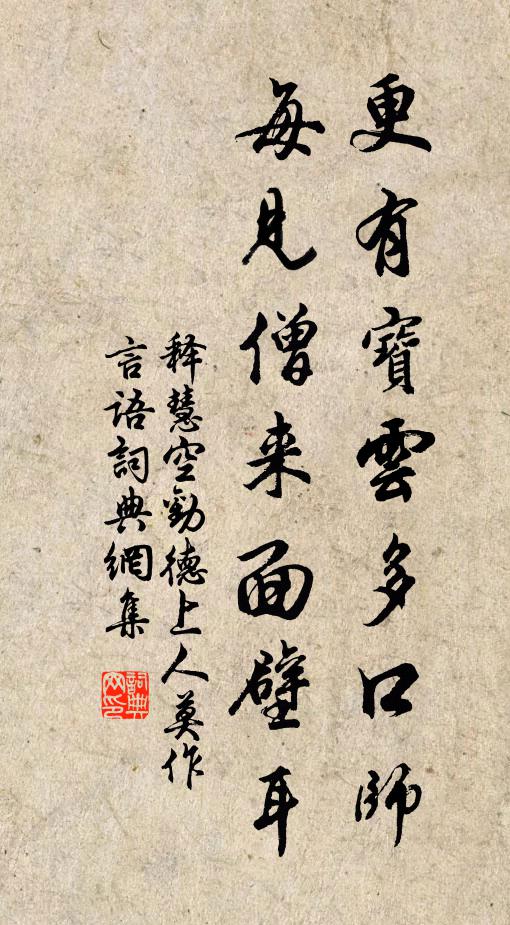 更有寶雲多口師
每見僧来面壁耳
释慧空勸德上人莫作
言语詞典網集
詞典
网印